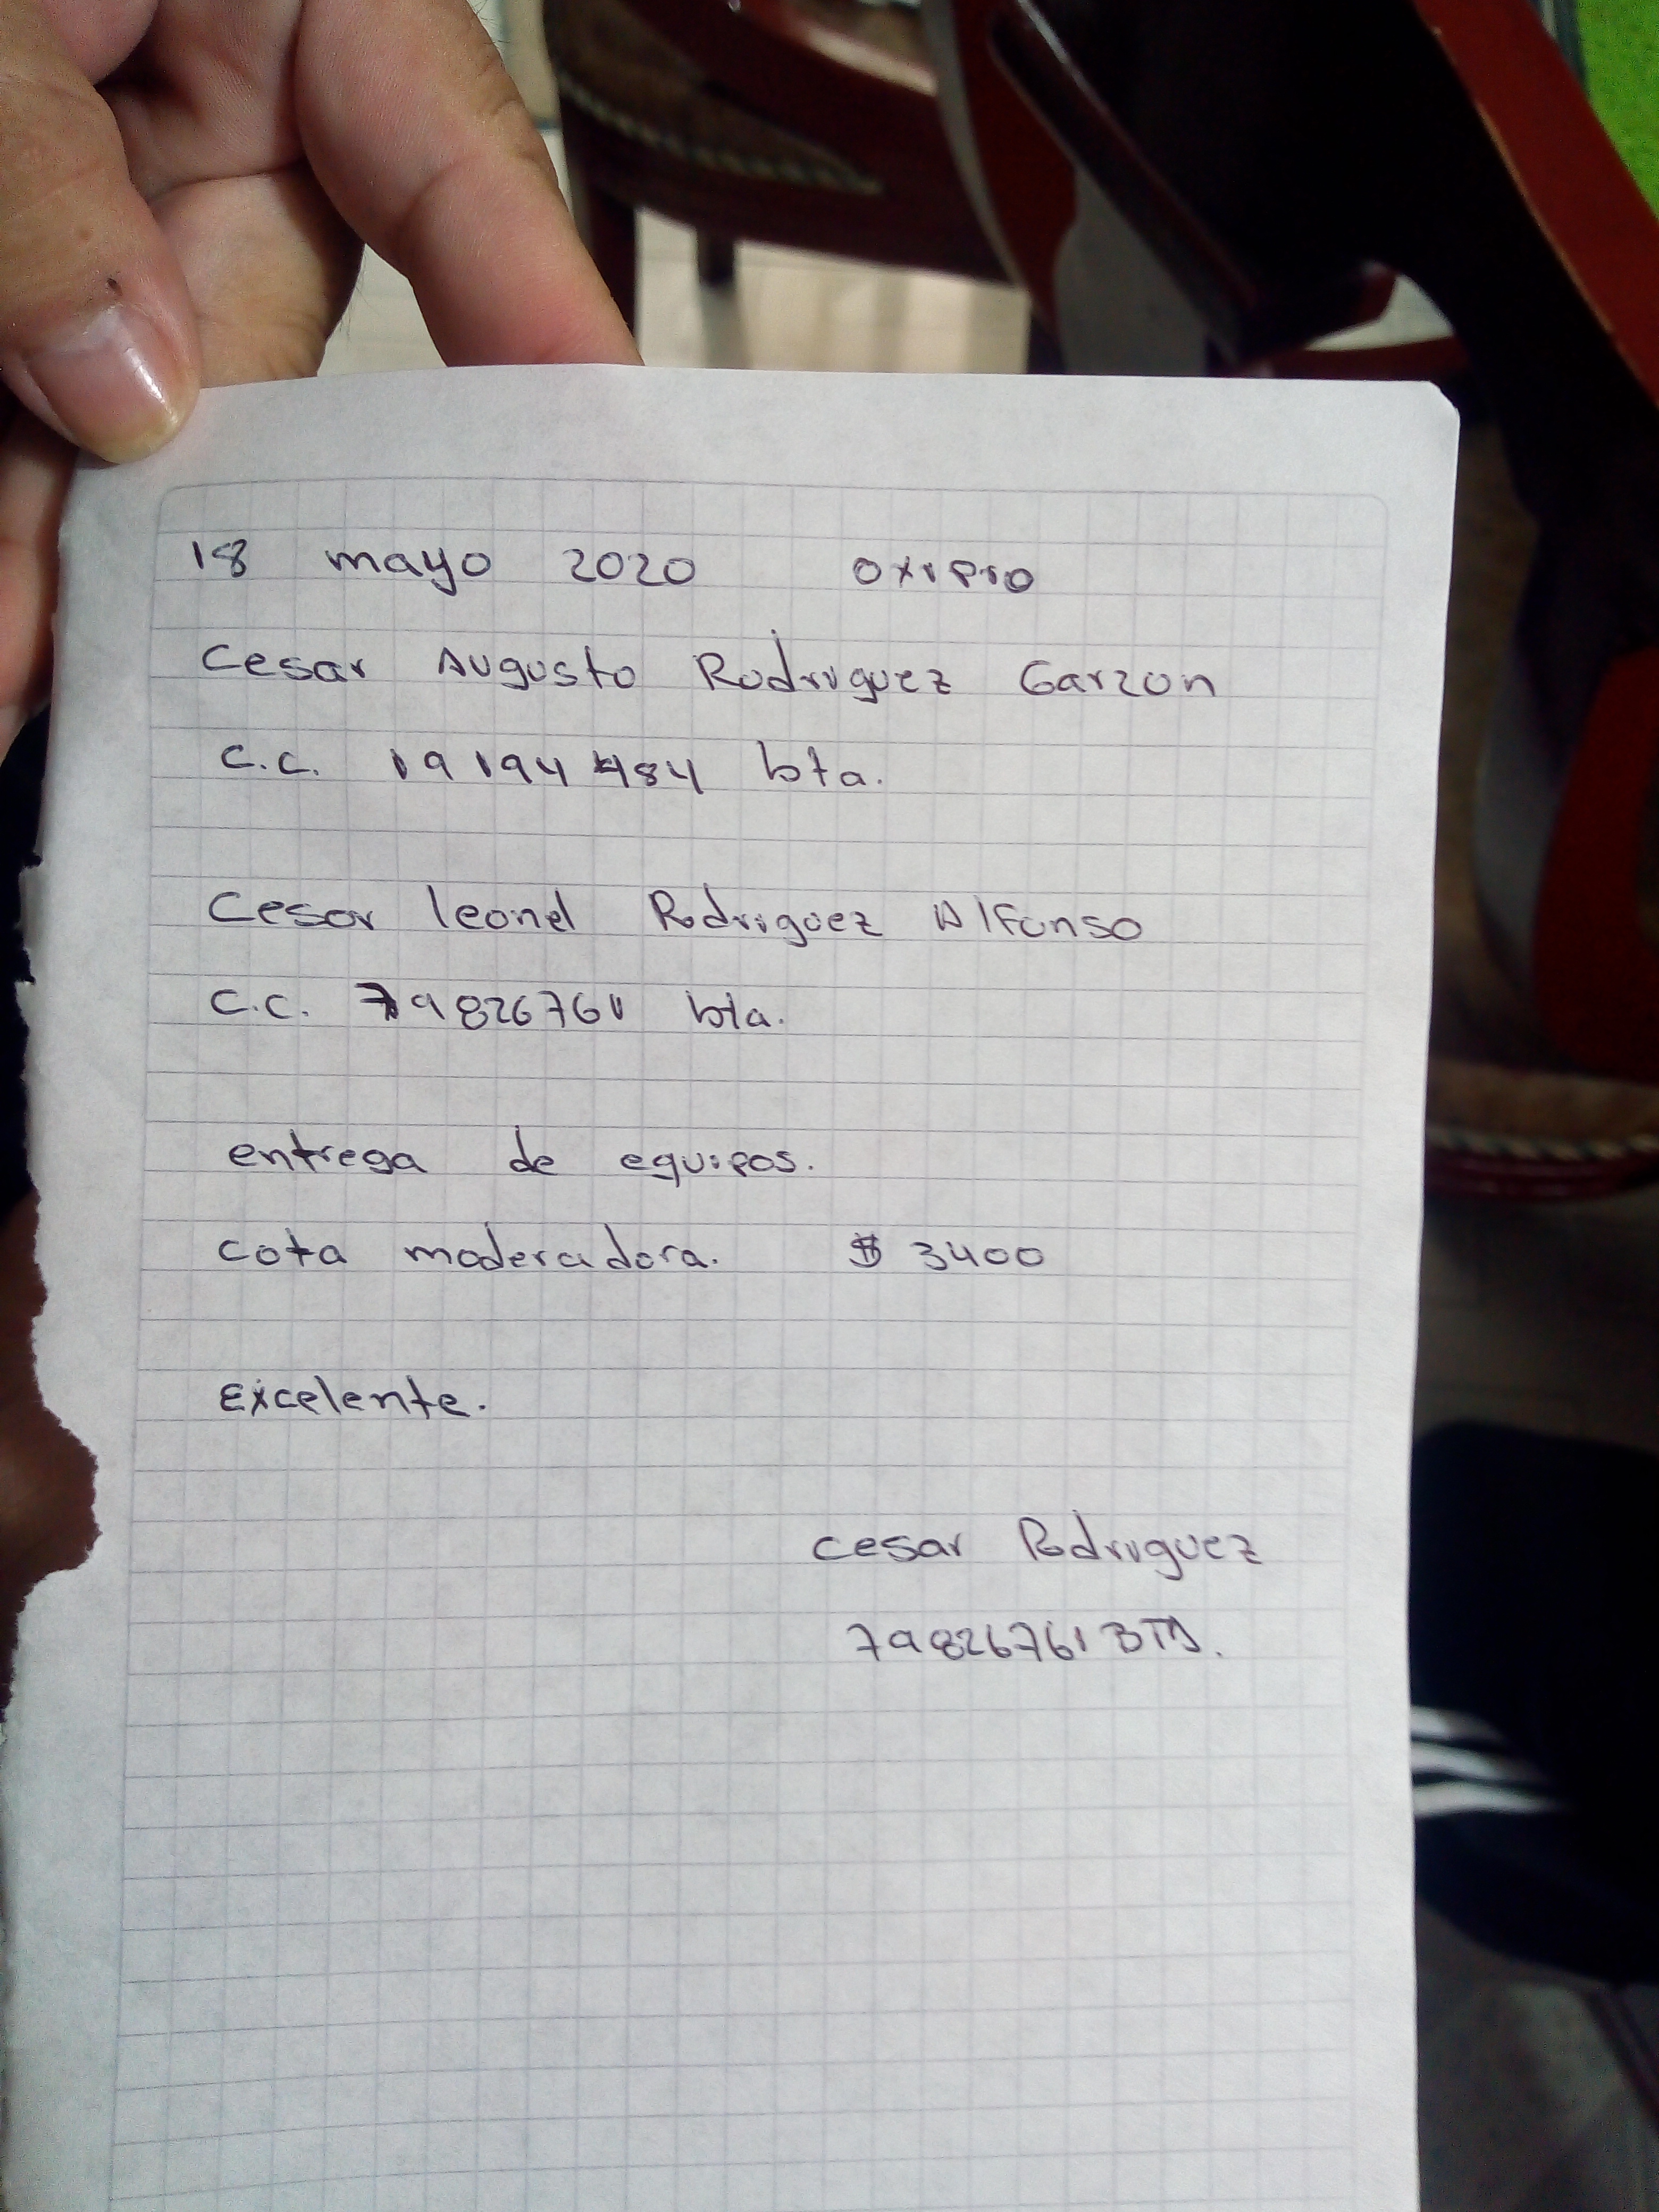 18 mayo 2020 oxipro
Cesar Augusto Rodriguez Garzon
C.C. 19194484 bta.
Cesar leonel Rodriguez Alfonso
C.C. 79826761 bta.
entrega de equipos.
cota moderadora. $ 3400
Excelente.
Cesar Rodriguez
79826761 BTA.